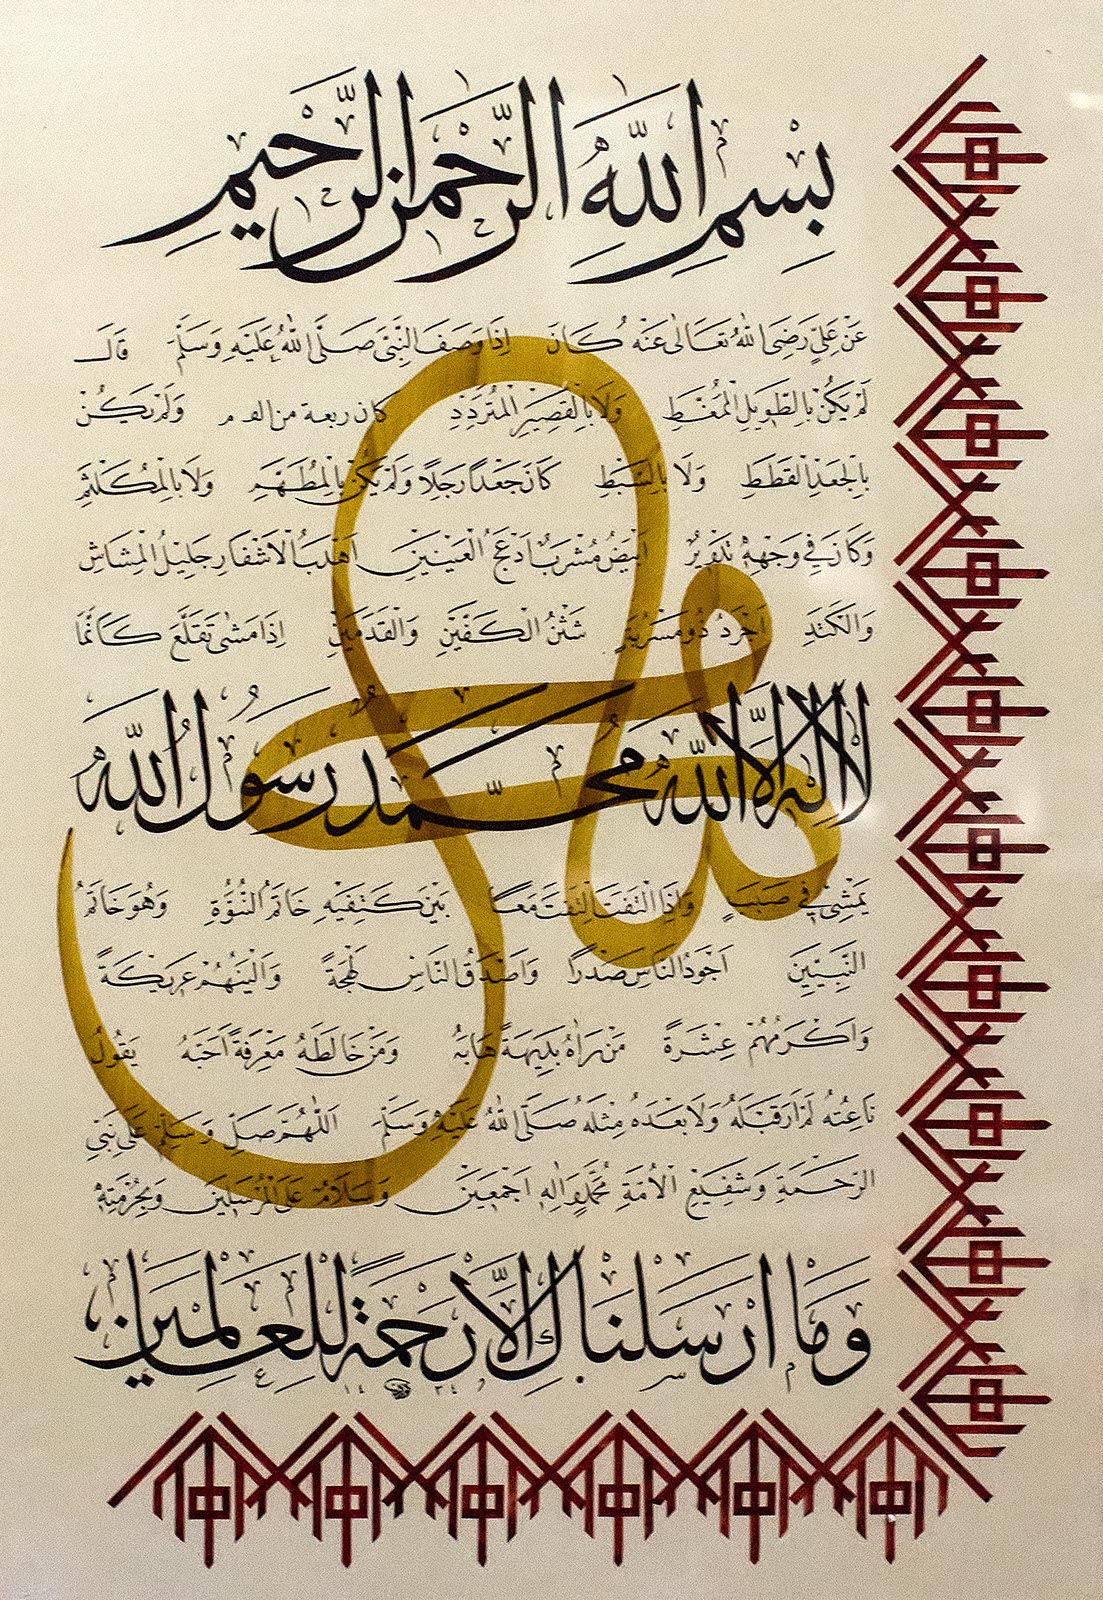 بِسْمِ اللَّهِ الرَّحْمٰنِ الرَّحِيمِ
عَنْ عَلِيٍّ رَضِيَ اللهُ تَعَالٰى عَنْهُ كَانَ إِذَا وَصَفَ النَّبِيَّ صَلَّى اللهُ عَلَيْهِ وَسَلَّمَ قَالَ
لَمْ يَكُنْ بِالطَّوِيلِ الْمُمَّغَطِ وَلَا بِالْقَصِيرِ الْمُتَرَدِّدِ كان ربعة من القوم وَلَمْ يَكُنْ
بِالْجَعْدِ الْقَطَطِ وَلَا بِالسَّبْطِ كَانَ جَعْدًا رَجِلًا وَلَمْ يَكُنْ بِالْمُطَهَّمِ وَلَا بِالْمُكَلْثَمِ
وَكَانَ فِي وَجْهِهِ تَدْوِيرٌ أَبْيَضُ مُشْرَبٌ أَدْعَجُ الْعَيْنَيْنِ أَهْدَبُ الْأَشْفَارِ جَلِيلُ الْمُشَاشِ
وَالْكَتَدِ أَجْرَدُ ذُو مَسْرُبَةٍ شَثْنُ الْكَفَّيْنِ وَالْقَدَمَيْنِ إِذَا مَشٰى تَقَلَّعَ كَأَنَّمَا
لَا إِلٰهَ إِلَّا اللهُ مُحَمَّدٌ رَسُولُ اللهِ
يَمْشِي فِي صَبَبٍ وَإِذَا الْتَفَتَ الْتَفَتَ مَعًا بَيْنَ كَتِفَيْهِ خَاتَمُ النُّبُوَّةِ وَهُوَ خَاتَمُ
النَّبِيِّينَ أَجْوَدُ النَّاسِ صَدْرًا وَأَصْدَقُ النَّاسِ لَهْجَةً وَأَلْيَنُهُمْ عَرِيكَةً
وَأَكْرَمُهُمْ عِشْرَةً مَنْ رَآهُ بَدِيهَةً هَابَهُ وَمَنْ خَالَطَهُ مَعْرِفَةً أَحَبَّهُ يَقُولُ
نَاعِتُهُ لَمْ أَرَ قَبْلَهُ وَلَا بَعْدَهُ مِثْلَهُ صَلَّى اللهُ عَلَيْهِ وَسَلَّمَ اللّٰهُمَّ صَلِّ وَسَلِّمْ عَلٰى نَبِيِّ
الرَّحْمَةِ وَشَفِيعِ الْأُمَّةِ مُحَمَّدٍ وَآلِهِ أَجْمَعِينَ وَسَلَامٌ عَلَى الْمُرْسَلِينَ وَبِحُرْمَتِهِ
وَمَا أَرْسَلْنَاكَ إِلَّا رَحْمَةً لِلْعَالَمِينَ